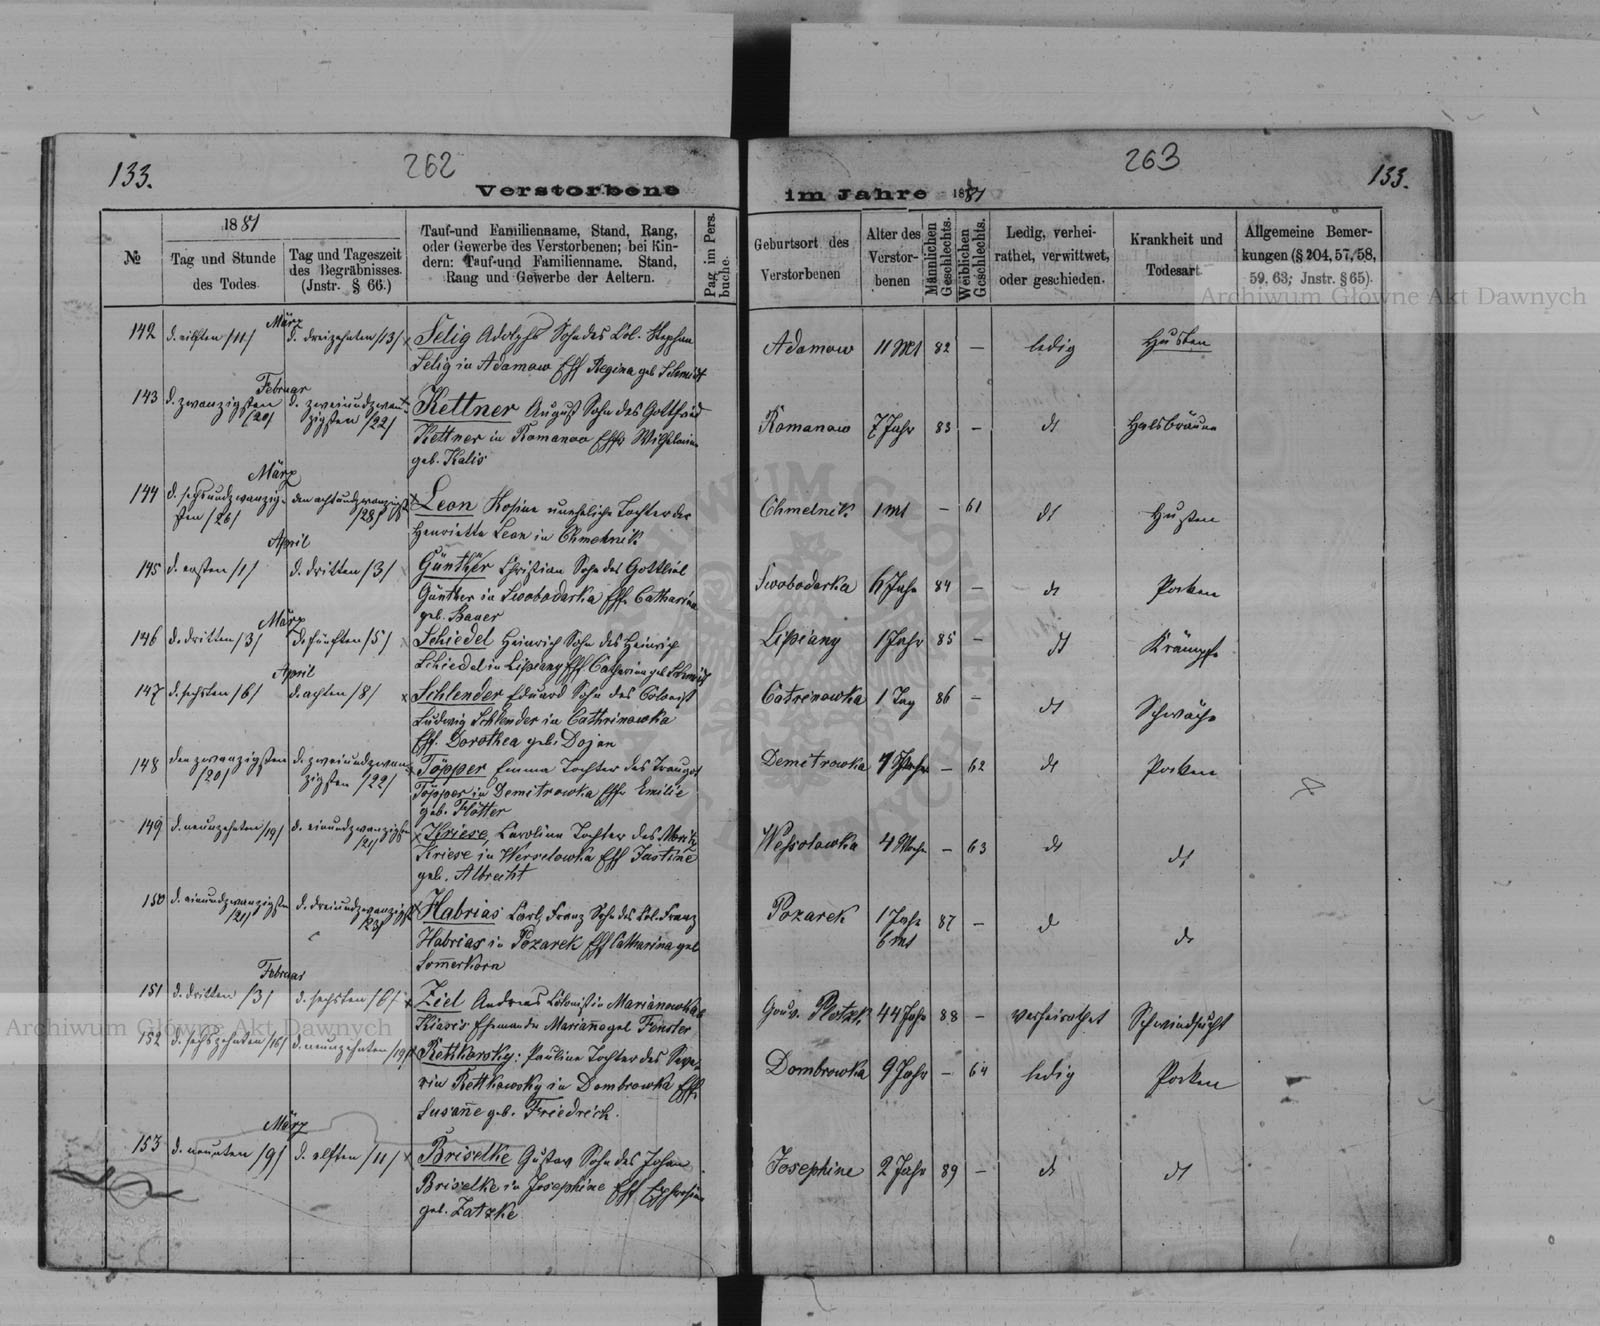 133.
262
Verstorbene
263
133.
im Jahre 1881
№
1881
Tag und Stunde
des Todes
Tag und Tageszeit
des Begräbnisses.
(Jnstr. § 66.)
Tauf-und Familienname, Stand, Rang,
oder Gewerbe des Verstorbenen; bei Kin-
dern: Tauf-und Familienname. Stand,
Rang und Gewerbe der Aeltern.
Pag. im Pers.
buche.
Geburtsort des
Verstorbenen
Alter des
Verstor-
benen
Männlichen
Geschlechts.
Weiblichen
Geschlechts.
Ledig, verhei-
rathet, verwittwet,
oder geschieden.
Krankheit und
Todesart
Allgemeine Bemer-
kungen (§ 204, 57, 58,
59, 63; Jnstr. § 65).
Archiwum Główne Akt Dawnych
März
142 d. eilften /11/ d. dreizehnten /13/ Selig Adolph Sohn des Col. Stephan
Selig in Adamow Eff Regina geb Schmidt
Adamow 11 Mt 82 — ledig Husten
Februar
143 d. zwanzigsten /20/ d. zweiundzwan-
zigsten /22/
Kettner August Sohn des Gottfried
Kettner in Romanow Eff Wilhelmine
geb. Kalis
Romanow 7 Jahr 83 — dt Halsbräune
März
144 d. sechsundzwanzig-
sten /26/ den achtundzwanzigst
/28/
Leon Rosine uneheliche Tochter der
Henriette Leon in Chmelnik
Chmelnik 1 Mt — 61 dt Husten
April
145 d. ersten /1/ d. dritten /3/ Günther Christian Sohn des Gottlieb
Günther in Swobodarka Eff. Catharina
geb. Bauer
Swobodarka 6 Jahr 84 — dt Pocken
März
146 d. dritten /3/ d. fünften /5/ Schiedel Heinrich Sohn des Heinrich
Schiedel in Lipiany Eff. Catharina geb Schmidt
Lipiany 1 Jahr 85 — dt Krämpfe
April
147 d. sechsten /6/ d. achten /8/ Schlender Eduard Sohn des Colonist
Ludwig Schlender in Cathrinowka
Eff. Dorothea geb. Dojan
Catrinowka 1 Tag 86 — dt Schwäche
148 den zwanzigsten
/20/ d. zweiundzwan-
zigsten /22/
Töpper Emma Tochter des Traugot
Töpper in Demitrowka Eff. Emilie
geb. Flötter
Demetrowka — 62 dt Pocken
149 d. neunzehnten /19/ d. einundzwanzigsten
/21/
Kriese, Caroline Tochter des Moritz
Kriese in Werselowka Eff Justine
geb. Albrecht
Wessolowka 4 Woche — 63 dt dt
150 d. einundzwanzigsten
/21/ d. dreiundzwanzigst
/23/
Habrias Carl Franz Sohn des Col. Franz
Habrias in Pozarek Eff Catharina geb
Sommerkorn
Pozarek 1 Jahr
6 Mt 87 — dt dt
Februar
151 d. dritten /3/ d. sechsten /6/ Ziel Andreas Colonist in Marianowka
Ehemann der Marianne geb Fenster
Gouv. Plotzk 44 Jahr 88 — verheirathet Schwindsucht
Archiwum Główne Akt Dawnych
152 d. sechszehnten /16/ d. neunzehnten /19/ Rettkowsky: Pauline Tochter des Seve-
rin Rettkowsky in Dombrowka Eff.
Susanne geb. Friedrich.
Dombrowka 9 Jahr — 64 ledig Pocken
März
153 d. neunten /9/ d. elften /11/ Briselke Gustav Sohn des Johan
Briselke in Josephine Eff Euphrosine
geb. Zatzke
Josephine 2 Jahr 89 — dt dt